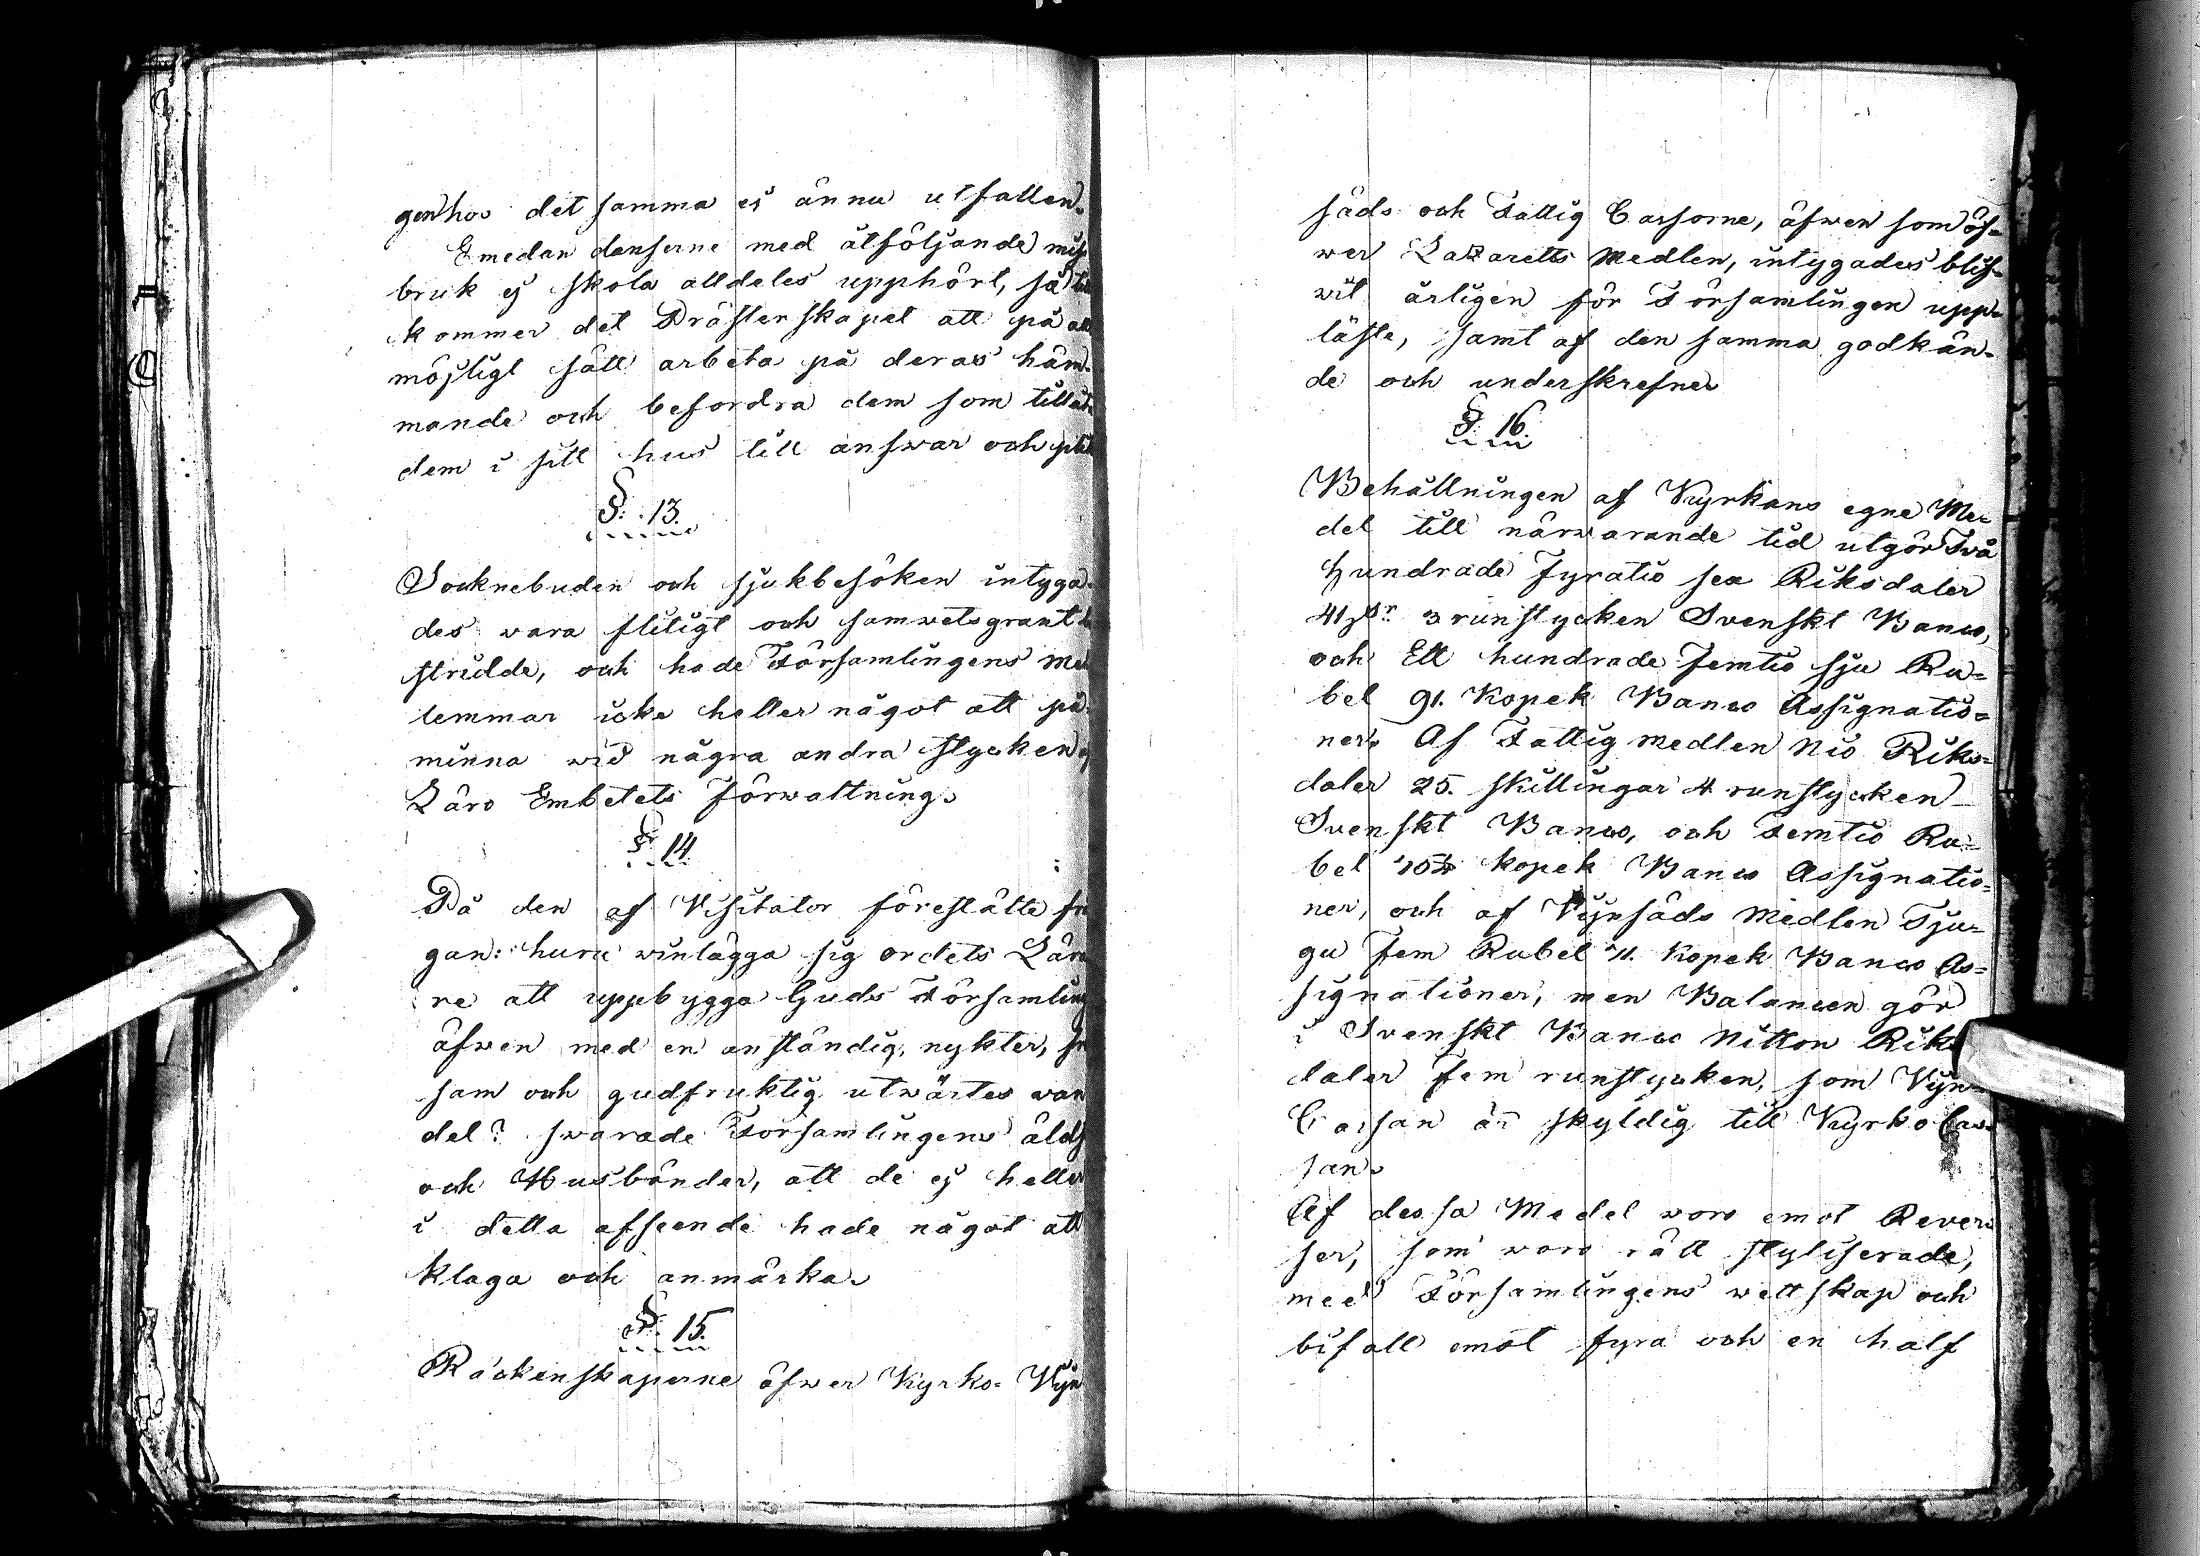 gen hos det samma ej ännu utfallen.
Emedan danserne med åtföljande mis
bruk ej skola alldeles upphört, så
kommer det Prästerskapet att på all
möjligt sätt arbeta på deras häm-
mande och befordra dem som tillåt
dem i sitt hus till answar och plikt
§. 13.
Socknebuden och sjukbesöken intyga-
des wara flitigt och samwetsgrant
stridde, och hade Församlingens Med
lemmar icke heller något att på
minna wid några andra stycken
Läro Embetets Förwaltning.
§. 14.
På den af Visitator förestälte frå
gan: huru winlägga sig ordets Lära
re att uppbygga Guds Församling
äfwen med en anständig, nykter,
sam och gudfruktig utwärtes wan
del? swarade Församlingens älds
och Husbönder, att de ej heller
i detta afseende hade något att
klaga och anmärka.
§. 15.
Räckenskaperne öfwer Kyrko- Wijn
säds och Fattig Cassorne, äfwen som öf-
wer Lazaretts Medlen, intygades blif-
wit årligen för Församlingen upp-
läste, samt af den samma godkän-
de och underskrefne
§. 16.
Behållningen af Kyrkans egne Me-
del till närwarande tid utgör Twå
Hundrade Fyratio sex Riksdaler
41 3 runstycken Svenskt Banco,
och Ett hundrade Femtio sju Ru-
bel 91. Kopek Banco Assignatio-
ner. Af Fattig medlen Nio Riks-
daler 25. skillingar 4 runstycken
Svenskt Banco, och Femtio Ru-
bel kopek Banco Assignatio-
ner, och af Wijnsäds Medlen Tju-
gu Fem Rubel 11. Kopek Banco As-
signationer, men Balancen gör
i Svenskt Banco Nitton Riks
daler Fem runstycken, som Wijn-
Cassan är skyldig till Kyrko Cas-
san.
Af dessa Medel woro emot Rever-
ser, som woro rätt styliserade,
med Församlingens wettskap och
bifall emot fyra och en half